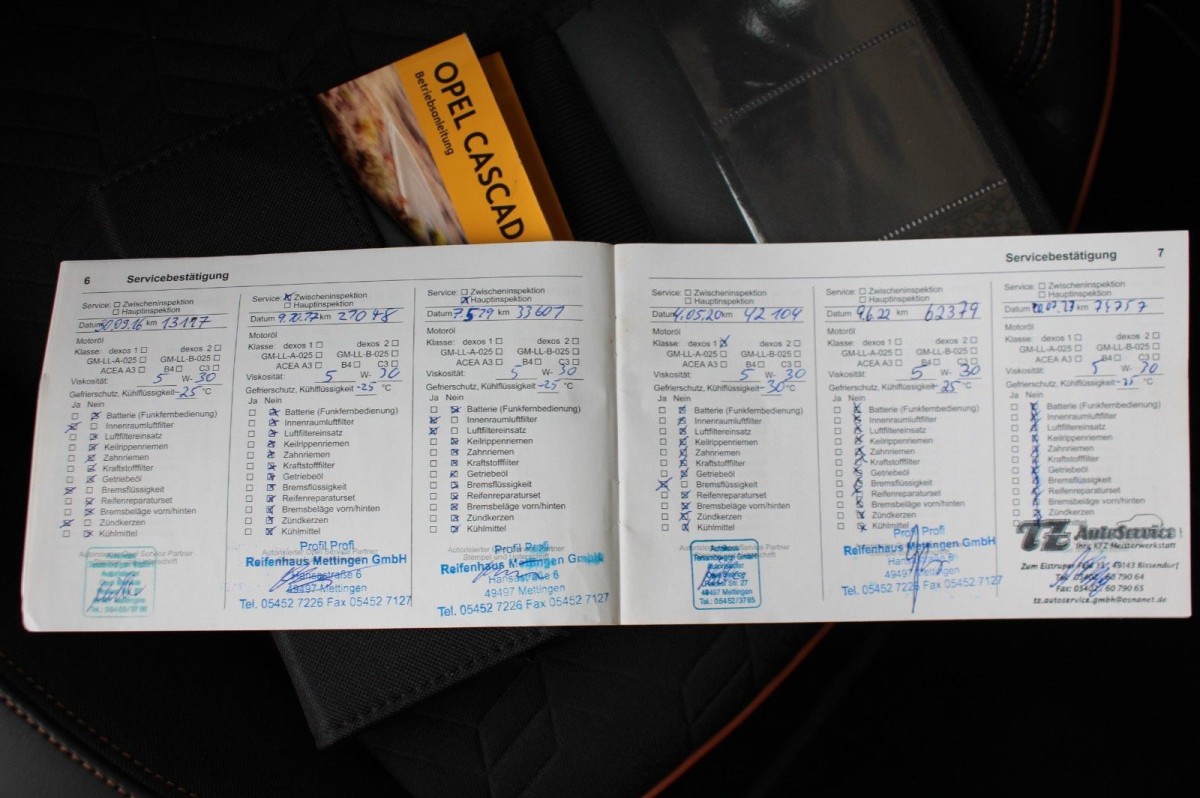 OPEL CASCAD
Betriebsanleitung
6 Servicebestätigung
Service: Zwischeninspektion
Hauptinspektion
Datum km 13197
Motoröl
Klasse: dexos 1 dexos 2
GM-LL-A-025 GM-LL-B-025
ACEA A3 B4 C3
Viskosität: 5 W- 30
Gefrierschutz, Kühlflüssigkeit -25 °C
Ja Nein
Batterie (Funkfernbedienung)
Innenraumluftfilter
Luftfiltereinsatz
Keilrippenriemen
Zahnriemen
Kraftstofffilter
Getriebeöl
Bremsflüssigkeit
Reifenreparaturset
Bremsbeläge vorn/hinten
Zündkerzen
Kühlmittel
Service: Zwischeninspektion
Hauptinspektion
Datum 9.10.17 km 27048
Motoröl
Klasse: dexos 1 dexos 2
GM-LL-A-025 GM-LL-B-025
ACEA A3 B4 C3
Viskosität: 5 W- 30
Gefrierschutz, Kühlflüssigkeit -25 °C
Ja Nein
Batterie (Funkfernbedienung)
Innenraumluftfilter
Luftfiltereinsatz
Keilrippenriemen
Zahnriemen
Kraftstofffilter
Getriebeöl
Bremsflüssigkeit
Reifenreparaturset
Bremsbeläge vorn/hinten
Zündkerzen
Kühlmittel
Profil Profi
Reifenhaus Mettingen GmbH
Hansastraße 6
49497 Mettingen
Tel. 05452 7226 Fax 05452 7127
Service: Zwischeninspektion
Hauptinspektion
Datum 7.5.19 km 33601
Motoröl
Klasse: dexos 1 dexos 2
GM-LL-A-025 GM-LL-B-025
ACEA A3 B4 C3
Viskosität: 5 W- 30
Gefrierschutz, Kühlflüssigkeit -25 °C
Ja Nein
Batterie (Funkfernbedienung)
Innenraumluftfilter
Luftfiltereinsatz
Keilrippenriemen
Zahnriemen
Kraftstofffilter
Getriebeöl
Bremsflüssigkeit
Reifenreparaturset
Bremsbeläge vorn/hinten
Zündkerzen
Kühlmittel
Profil Profi
Reifenhaus Mettingen GmbH
Hansastraße 6
49497 Mettingen
Tel. 05452 7226 Fax 05452 7127
Servicebestätigung 7
Service: Zwischeninspektion
Hauptinspektion
Datum 4.05.20 km 42104
Motoröl
Klasse: dexos 1 dexos 2
GM-LL-A-025 GM-LL-B-025
ACEA A3 B4 C3
Viskosität: 5 W- 30
Gefrierschutz, Kühlflüssigkeit -30 °C
Ja Nein
Batterie (Funkfernbedienung)
Innenraumluftfilter
Luftfiltereinsatz
Keilrippenriemen
Zahnriemen
Kraftstofffilter
Getriebeöl
Bremsflüssigkeit
Reifenreparaturset
Bremsbeläge vorn/hinten
Zündkerzen
Kühlmittel
49497 Mettingen
Tel.: 05452/3785
Service: Zwischeninspektion
Hauptinspektion
Datum 9.6.22 km 62379
Motoröl
Klasse: dexos 1 dexos 2
GM-LL-A-025 GM-LL-B-025
ACEA A3 B4 C3
Viskosität: 5 W- 30
Gefrierschutz, Kühlflüssigkeit -25 °C
Ja Nein
Batterie (Funkfernbedienung)
Innenraumluftfilter
Luftfiltereinsatz
Keilrippenriemen
Zahnriemen
Kraftstofffilter
Getriebeöl
Bremsflüssigkeit
Reifenreparaturset
Bremsbeläge vorn/hinten
Zündkerzen
Kühlmittel
Profil Profi
Reifenhaus Mettingen GmbH
Hansastraße 6
49497 Mettingen
Tel. 05452 7226 Fax 05452 7127
Service: Zwischeninspektion
Hauptinspektion
Datum km
Motoröl
Klasse: dexos 1 dexos 2
GM-LL-A-025 GM-LL-B-025
ACEA A3 B4 C3
Viskosität: 5 W- 30
Gefrierschutz, Kühlflüssigkeit -25 °C
Ja Nein
Batterie (Funkfernbedienung)
Innenraumluftfilter
Luftfiltereinsatz
Keilrippenriemen
Zahnriemen
Kraftstofffilter
Getriebeöl
Bremsflüssigkeit
Reifenreparaturset
Bremsbeläge vorn/hinten
Zündkerzen
TZ AutoService
Ihre KFZ Meisterwerkstatt
Zum Eistruper 49143 Bissendorf
Tel. 60 790 64
Fax: 60 790 65
tz.autoservice.gmbh@osnanet.de